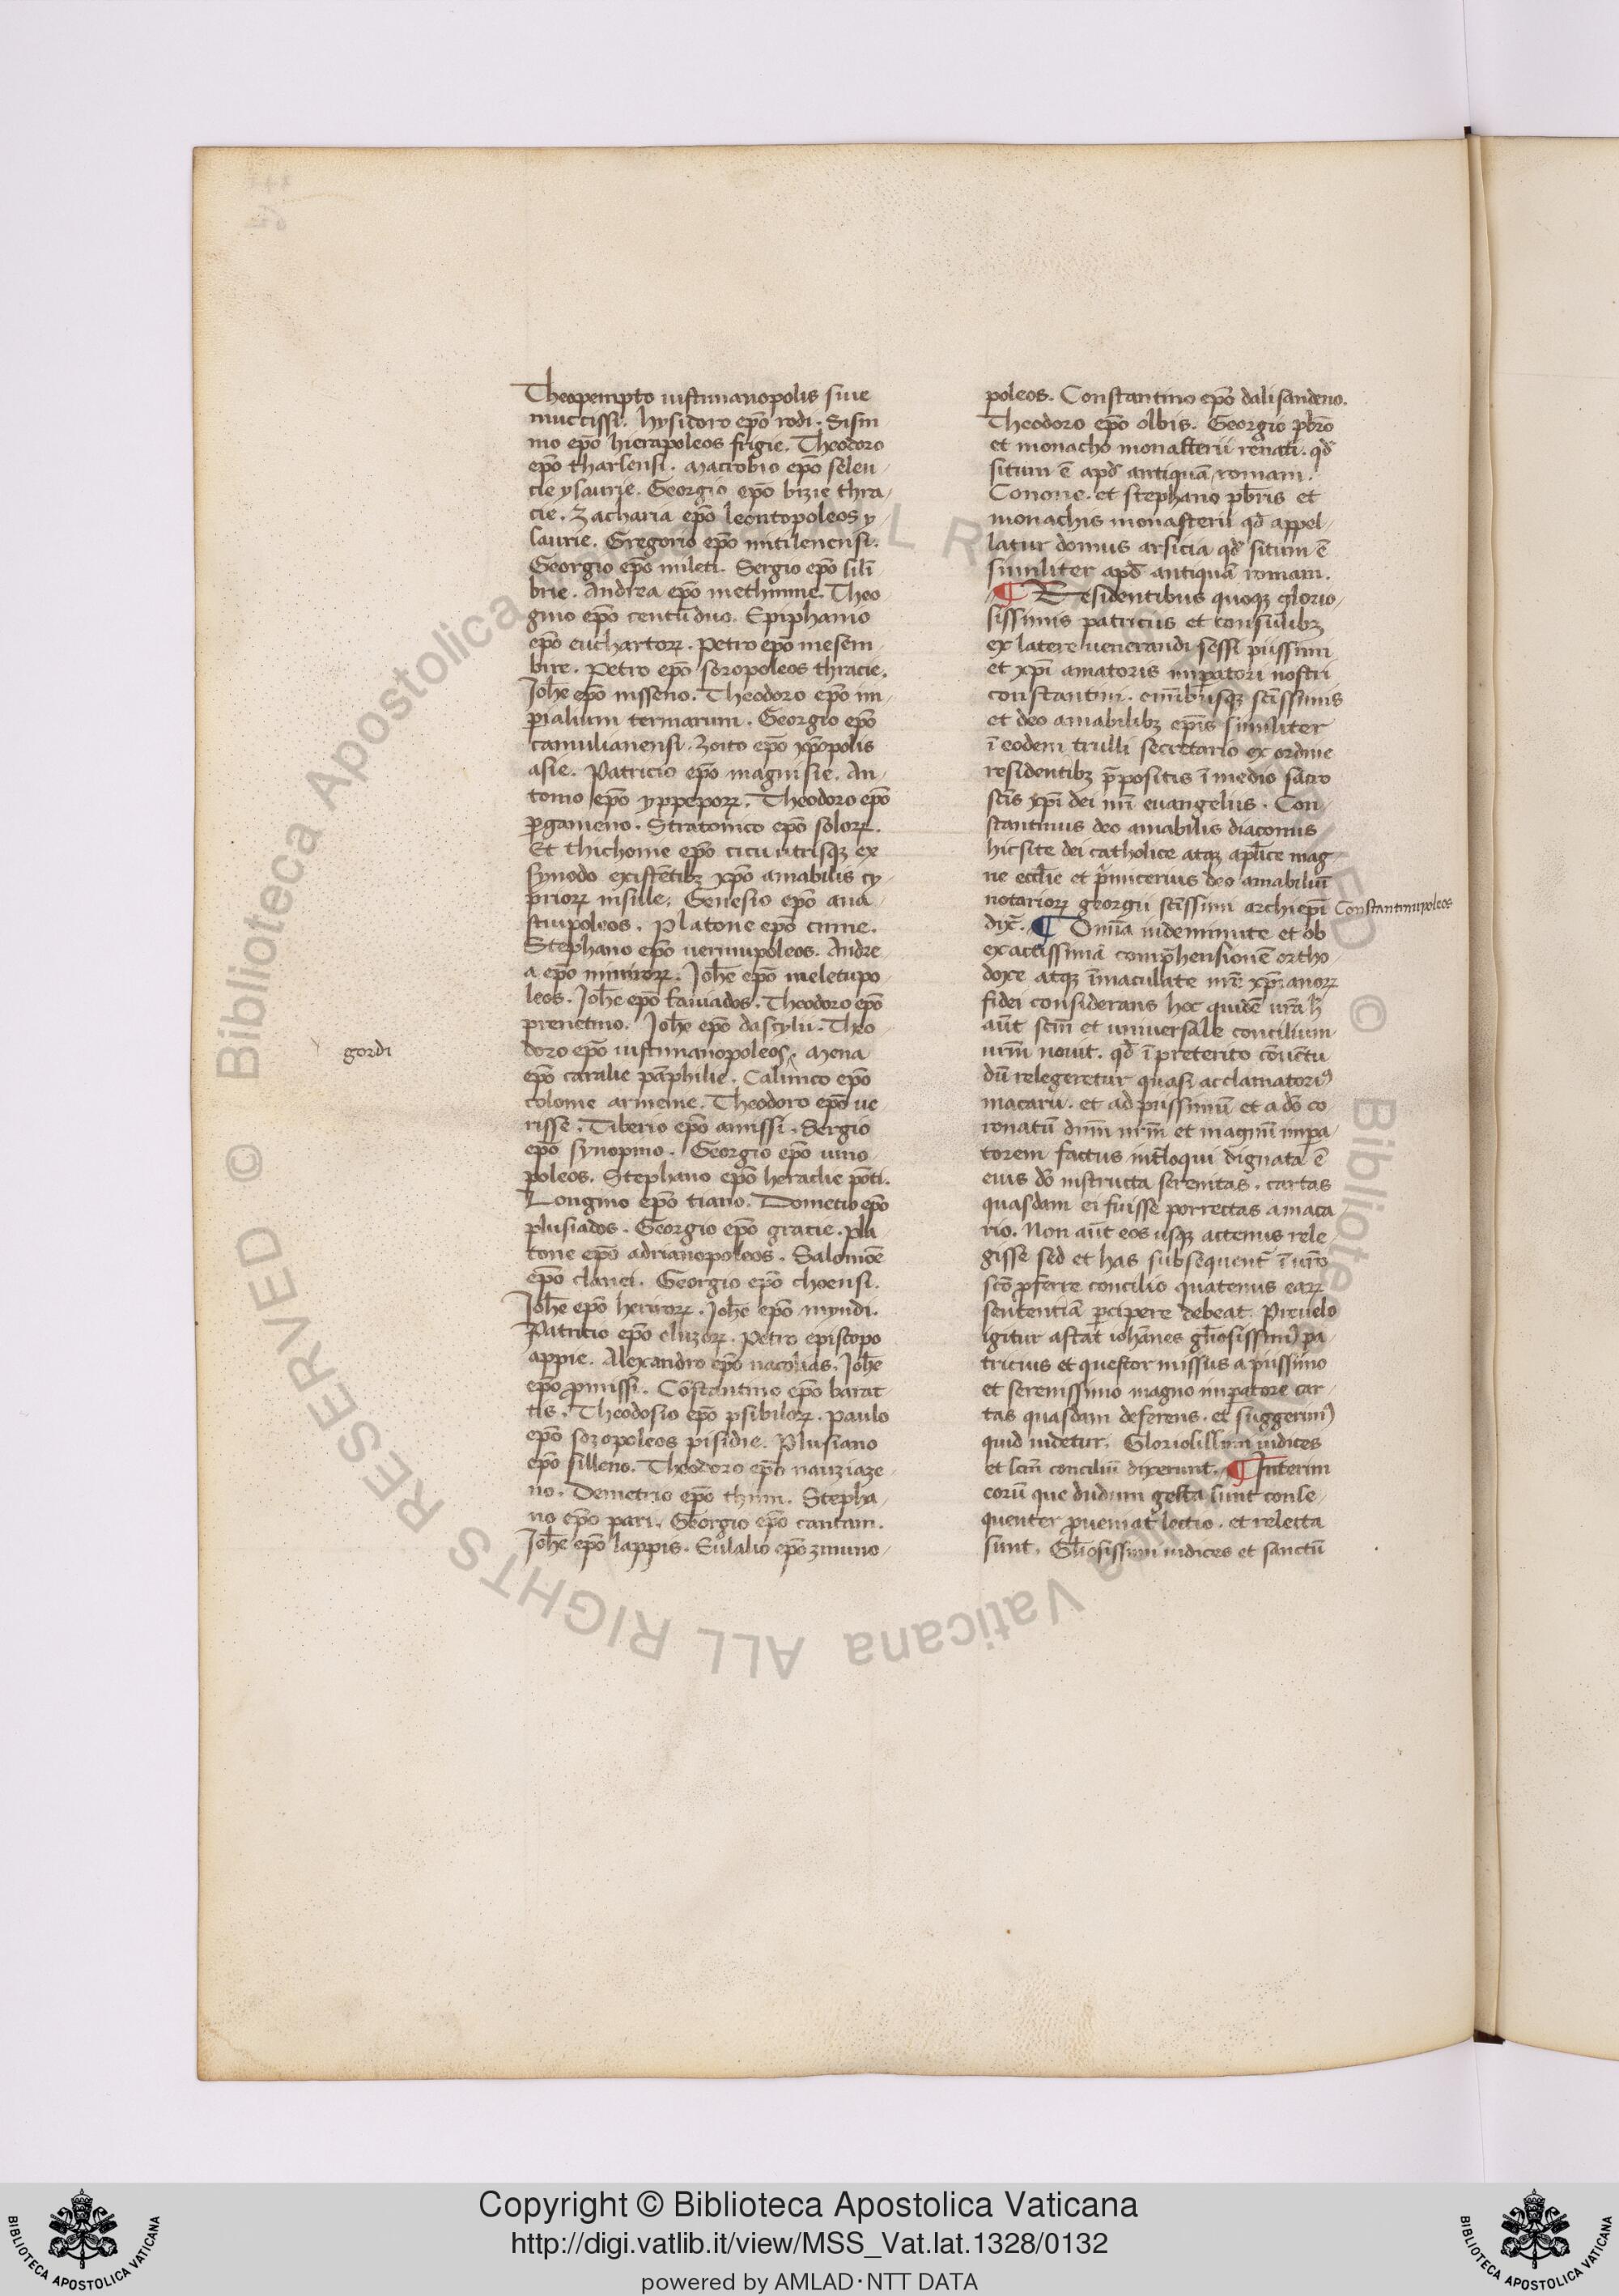 Theopempto iustinianopolis siue
muctissi. hysidoro ep̄o rodi. Sisin
nio ep̄o hierapoleos frigie. Theodoro
ep̄o tharsensi. Macrobio ep̄o seleu-
cie ysaurie. Georgio ep̄o bizie thra-
cie. Zacharia ep̄o leontopoleos y-
saurie. Gregorio ep̄o mitilenensi.
Georgio ep̄o mileti. Sergio ep̄o silī
brie. Andrea ep̄o methimne. Theo
gnio ep̄o centū duo. Epiphanio
ep̄o euchartoꝝ. Petro ep̄o mesem
brie. Petro ep̄o soropoleos thracie.
Joh̄e ep̄o nisseno. Theodoro ep̄o im
ꝑialium termarum. Georgio ep̄o
camulianensi. Zoito ep̄o xp̄opolis
asie. Patricio ep̄o magnisie. An-
tonio ep̄o yppeporꝝ. Theodoro ep̄o
ꝑgameno. Stratonico ep̄o soloꝝ.
Et thichone ep̄o cicu utrisqꝫ ex
synodo existētibꝫ xp̄o amabilis cy-
prioꝝ insule. Genesio ep̄o ana
stiupoleos. Platone ep̄o cinne.
Stephano ep̄o uerinupoleos. Andre
a ep̄o minuroꝝ. Joh̄e ep̄o meletupo
leos. Joh̄e ep̄o faiuados. Theodoro ep̄o
prenetino. Joh̄e ep̄o dascylii. Theo
doro ep̄o iustinianopoleos. Mena
gordi
ep̄o caralie pāphilie. Calinico ep̄o
colonie armenie. Theodoro ep̄o ue
risse. Tiberio ep̄o amissi. Sergio
ep̄o synopino. Georgio ep̄o uino
poleos. Stephano ep̄o heraclie pōti.
Longino ep̄o tiano. Dometio ep̄o
plusiados. Georgio ep̄o gracie. Pla
tone ep̄o adrianopoleos. Salomōe
ep̄o clanei. Georgio ep̄o choensi.
Joh̄e ep̄o heruroꝝ. Joh̄e ep̄o myndi.
Patricio ep̄o eluzoꝝ. Petro episcopo
appie. Alexandro ep̄o nacolias. Joh̄e
ep̄o ꝓmissi. Cōstantino ep̄o barat-
tis. Theodosio ep̄o psibiloꝝ. Paulo
ep̄o sozopoleos pisidie. Plusiano
ep̄o silleno. Theodoro ep̄o nauziaze-
no. Demetrio ep̄o thinii. Stepha-
no ep̄o pari. Georgio ep̄o cantani.
Joh̄e ep̄o lappis. Eulalio ep̄o zinuno-
poleos. Constantino ep̄o dalisandeno.
Theodoro ep̄o olbis. Georgio pb̄ro
et monacho monasterii renati. qd̄
situm ē apd̄ antiquā romam.
Conone. et stephano pb̄ris et
monachis monasterii qd̄ appel-
latur domus arsicia qd̄ situm ē
similiter apd̄ antiquā romam.
¶ Residentibus quoqꝫ glorio-
sissimis patriciis et consulibꝫ
ex latere uenerandi sessi piissimi
et xp̄i amatoris imꝑatori nostri
constantini. om̄ibusqꝫ sc̄issimis
et deo amabilibꝫ ep̄is similiter
ī eodem trulli secretario ex ordine
residentibꝫ p̄positis ī medio sacro
sc̄is xp̄i dei nr̄i euangeliis. Con-
stantinus deo amabilis diaconus
hic site dei catholice atqꝫ ap̄lice mag
ne eccl̄ie et p̄micerius deo amabiliū
notarioꝝ georgii sc̄issimi archiep̄i Constantinupoleos
dix̄. ¶ Om̄ia indeminute et ob
exactissimā comp̄hensionē ortho-
doxe atqꝫ īmaculate nr̄e xp̄ianoꝝ
fidei considerans hoc quidē ur̄a h̄
aūt sc̄m et uniuersale concilium
ur̄m nouit. qd̄ ī preterito cōuētu
dū relegeretur quasi acclamatoriꝰ
macarii. et ad piissimū et a dō co
ronatū dn̄m nr̄m et magnū imꝑa
torem factus int̄loqui dignata ē
eius dō instructa serenitas. cartas
quasdam ei fuisse porrectas a maca
rio. Non aūt eos usqꝫ actenus rele-
gisse sed et has subsequent̄ ī ur̄o
sc̄o ꝓferre concilio quatenus eaꝝ
sententiā ꝑcipere debeat. Preuelo
igitur astat iohānes gl̄iosissimꝰ pa-
tricius et questor missus a piissimo
et serenissimo magno imꝑatore car-
tas quasdam deferens. et suggerimꝰ
quid uidetur. Gloriosissimi iudices
et sc̄m conciliū dixerunt. ¶ Interim
eorū que dudum gesta sunt conse-
quenter ꝓueniat lectio. et relecta
sunt. Gl̄iosissimi iudices et sanctū
© Biblioteca Apostolica Vaticana ALL RIGHTS RESERVED
Copyright © Biblioteca Apostolica Vaticana
http://digi.vatlib.it/view/MSS_Vat.lat.1328/0132
powered by AMLAD·NTT DATA
BIBLIOTECA APOSTOLICA VATICANA
BIBLIOTECA APOSTOLICA VATICANA